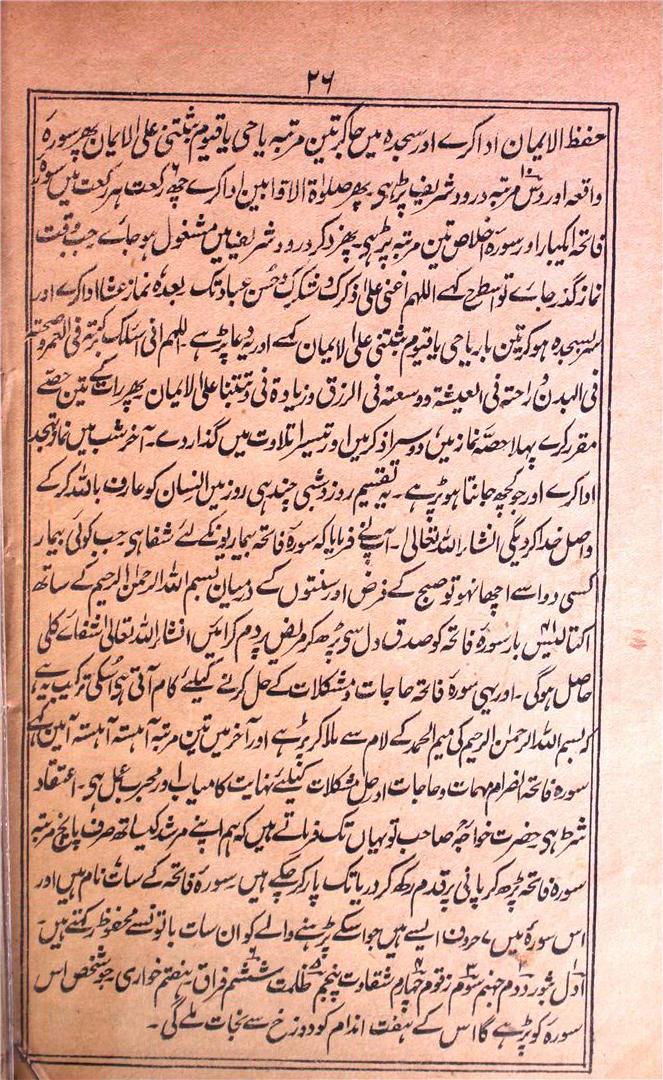 ۲۶
حفظ الایمان ادا کرے اور سجدہ میں جاکر تین مرتبہ یاحی یا قیوم ثبتنی علی الایمان پھر سورہ
واقعہ اور دس۱۰ مرتبہ درود شریف پڑہی پھر صلوٰۃ الاوابین ادا کرے چھ۶ رکعت ہر رکعت میں سورہ
فاتحہ ایکبار اور سورہ اخلاص تین مرتبہ پڑہی۔ پھر ذکر درود شریف میں مشغول ہو جاے جب وقت
نماز گذر جاے تو اسطرح کہے اللہم اعنی علیٰ ذکرک وشکرک وحُسن عبادتک بعدہٗ نماز عشا ادا کرے اور
سر بسجدہ ہو کر تین بار یاحی یا قیوم ثبتنی علی الایمان کہے اور یہ دعا پڑہے۔ اللہم انی اسئلک برکتہ فی العمر وصحتہ
فی البدن وراحتہ فی العیشۃ ووسعتہ فی الرزق وزیادۃ فی وثبتنا علی الایمان پھر رات کے تین حصے
مقرر کرے پہلا حصّہ نماز میں دوسرا ذکر میں اور تیسرا تلاوت میں گذار دے۔ آخر شب میں نماز تہجد
ادا کرے اور جو کچھ جانتا ہو پڑہے۔ یہ تقسیم روز و شبی چند ہی روز میں انسان کو عارف باللہ کرکے
واصل خدا کر دیگی انشاء اللہ تعالٰی۔ آپ نے فرمایا کہ سورہ فاتحہ بیماریونکے لئے شفا ہی جب کوئی بیمار
کسی دوا سے اچھا نہو تو صبح کے فرض اور سنتوں کے درمیان بسم اللہ الرحمٰن الرحیم کے ساتھ
اکتالیس۴۱ بار سورۂ فاتحہ کو صدق دل سی پڑھ کر مریض پر دم کرایں انشاء اللہ تعالیٰ شفاے کلی
حاصل ہوگی۔ اور یہی سورہ فاتحہ حاجات و مشکلات کے حل کرنے کیلئے کام آتی ہی اُسکی ترکیب یہ ہے
کہ بسم اللہ الرحمٰن الرحیم کی میم الحمد کے لام سے ملا کر پڑہے اور آخر میں تین مرتبہ آہستہ آہستہ آمین کہے
سورہ فاتحہ انصرام مہمات وحاجات اور حل مشکلات کیلئے نہایت کامیاب اور مجرب عمل ہی۔ اعتقاد
شرط ہی حضرت خواجہ صاحب تو یہاں تک فرماتے ہیں کہ ہم اپنے مرشد کیساتھ صرف پانچ مرتبہ
سورہ فاتحہ پڑھ کر پانی پر قدم رکھ کر دریا تک پار کر چکے ہیں۔ سورۂ فاتحہ کے سات۷ نام ہیں اور
اس سورۂ میں ۷ حروف ایسے ہیں جو اسکے پڑہنے والے کو ان سات باتونسے محفوظ رکھتے ہیں۔
اول۱ ثبور دوم۲ جہنم سوم۳ زقوم چہارم۴ شقاوت پنجم۵ ظلمت ششم۶ فراق ہفتم خواری۔ جو شخص اس
سورہ کو پڑہے گا اس کے ہفت اندام کو دوزخ سے نجات ملے گی۔